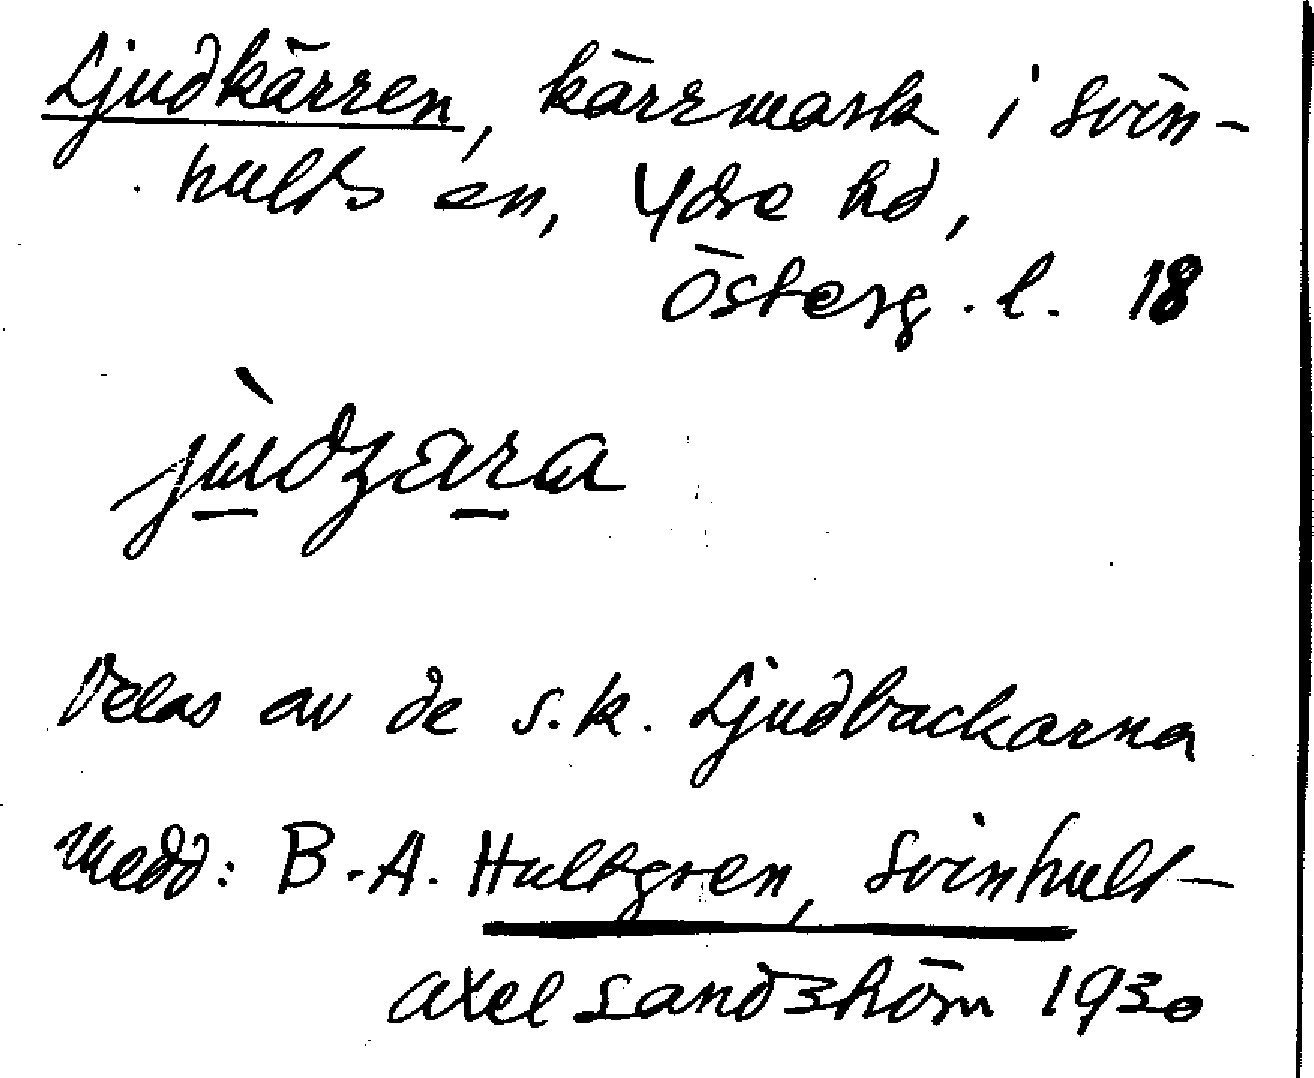 Ljudkärren, kärrmark i Svin-
hults sn, Ydre hd,
Österg. l. 18
jùdzara
Delas av de s.k. Ljudbackarna
Medd: B.A. Hultgren, Svinhult
Axel Sandström 1930